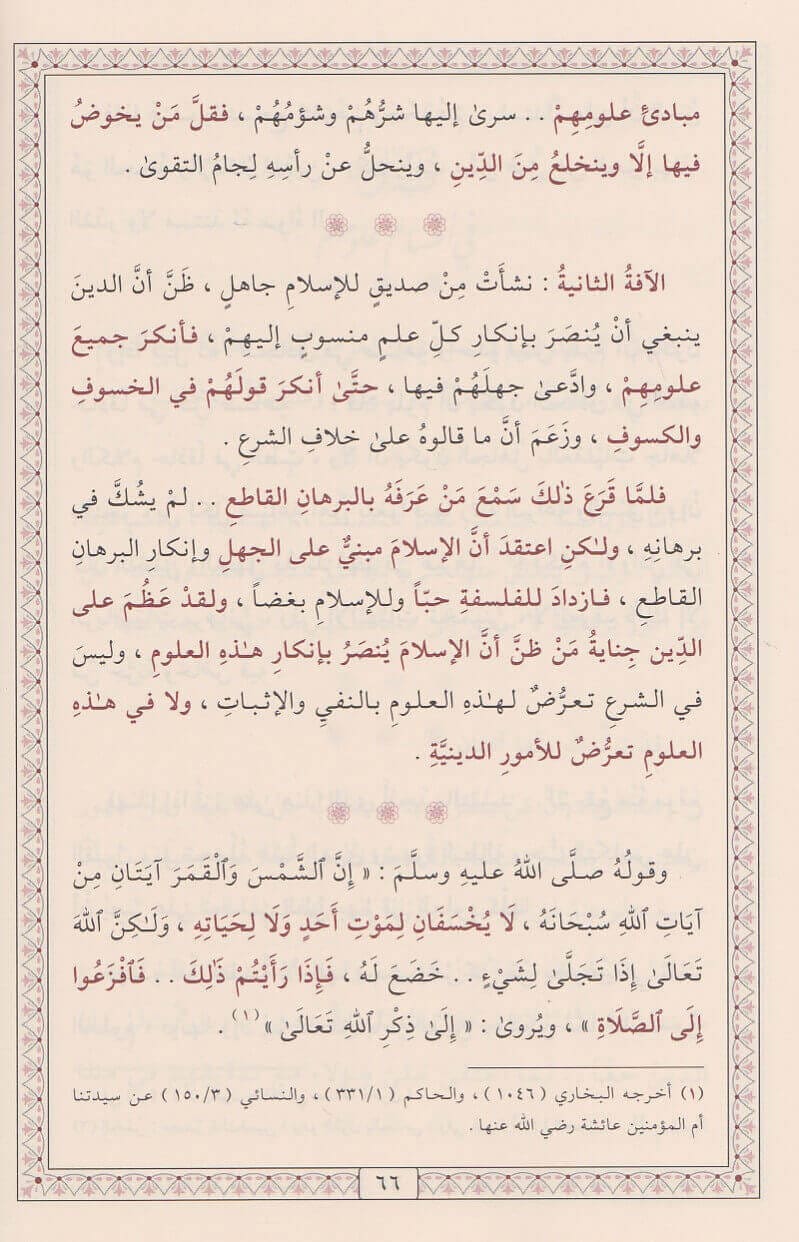 مبادئِ علومِهِمْ . . سرىٰ إليها شرُّهُمْ وشؤمُهُمْ ، فقلَّ مَنْ يخوضُ
فيها إلَّا وينخلعُ مِنَ الدِّينِ ، وينحلُّ عنْ رأسِهِ لِجامُ التقوىٰ .
الآفةُ الثانيةُ : نشأَتْ مِنْ صديقٍ للإسلامِ جاهلٍ ، ظَنَّ أنَّ الدينَ
ينبغي أنْ يُنصَرَ بإنكار كلِّ علمٍ منسوبٍ إليهِمْ ، فأنكرَ جميعَ
علومِهِمْ ، وادَّعىٰ جهلَهُمْ فيها ، حتَّىٰ أنكرَ قولَهُمْ في الخسوفِ
والكسوفِ ، وزَعَمَ أنَّ ما قالوهُ علىٰ خلافِ الشرعِ .
فلمَّا قَرَعَ ذٰلكَ سَمْعَ مَنْ عَرَفَهُ بالبرهانِ القاطعِ . . لمْ يشُكَّ في
برهانِهِ ، ولـٰكنِ اعتقدَ أنَّ الإسلامَ مبنيٌّ على الجهلِ وإنكارِ البرهانِ
القاطعِ ، فازدادَ للفلسفةِ حبّاً وللإسلامِ بغضاً ، ولقدْ عَظُمَ على
الدِّينِ جِنايةُ مَنْ ظنَّ أنَّ الإسلامَ يُنصَرُ بإنكارِ هـٰذهِ العلومِ ، وليسَ
في الشرعِ تعرُّضٌ لهـٰذهِ العلومِ بالنفيِ والإثباتِ ، ولا في هـٰذهِ
العلومِ تعرُّضٌ للأمورِ الدينيَّةِ .
وقولُهُ صلَّى اللهُ عليهِ وسلَّمَ : « إِنَّ ٱلشَّمْسَ وَٱلْقَمَرَ آيَتَانِ مِنْ
آيَاتِ ٱللهِ سُبْحَانَهُ ، لَا يُخْسَفَانِ لِمَوْتِ أَحَدٍ وَلَا لِحَيَاتِهِ ، وَلَـٰكِنَّ ٱللهَ
تَعَالَىٰ إِذَا تَجَلَّىٰ لِشَيْءٍ . . خَضَعَ لَهُ ، فَإِذَا رَأَيْتُمْ ذَٰلِكَ . . فَٱفْزَعُوا
إِلَى ٱلصَّلَاةِ » ، ويُروىٰ : « إِلَىٰ ذِكْرِ ٱللهِ تَعَالَىٰ »(١) .
(١) أخرجه البخاري ( ١٠٤٦ ) ، والحاكم ( ٣٣١/١ ) ، والنسائي ( ١٥٠/٣ ) عن سيدتنا
أم المؤمنين عائشة رضي الله عنها .
٦٦